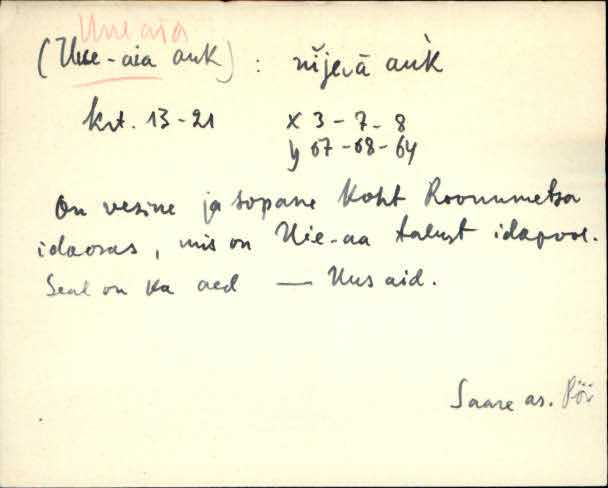 Uue aia
(Uue-aia auk) : nijevā auk
krt. 13-21 x 3-7-8
y 67-68-64
On vesine ja sopane koht Roonumetsa
idaosas, mis on Uie-aa talust idapool.
Seal on ka aed — Uus aid.
Saare as. Pöi